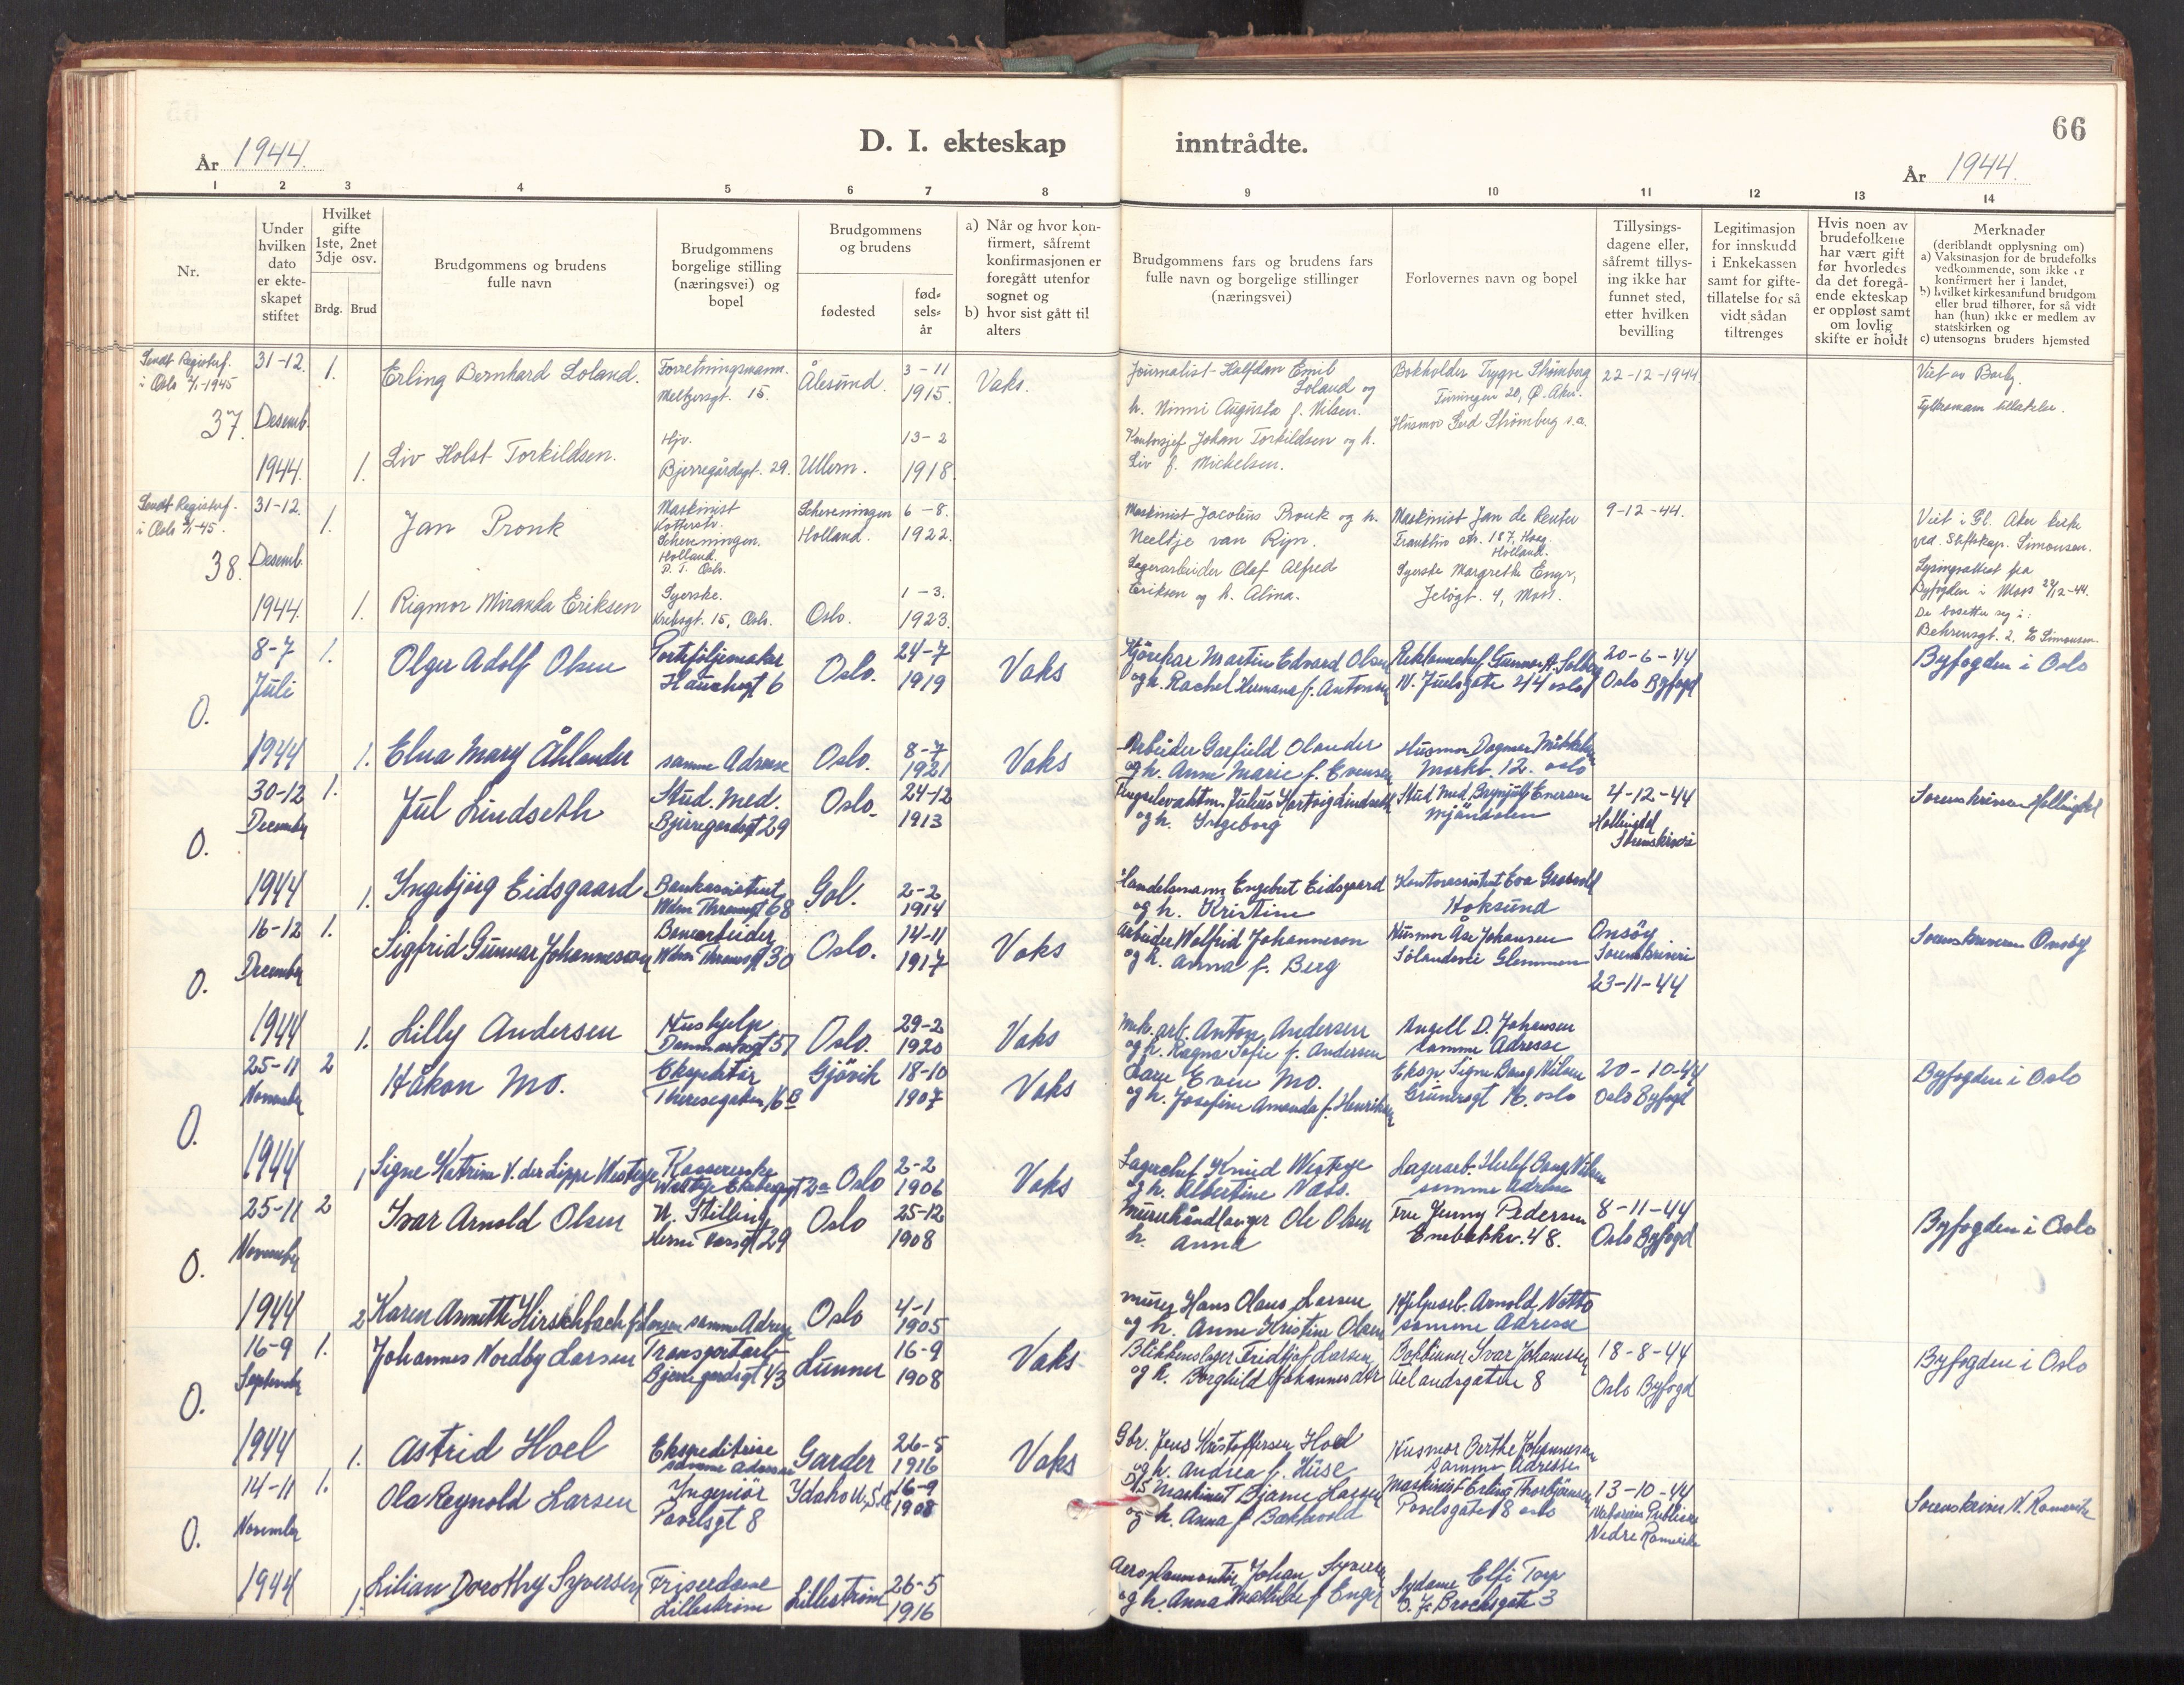 66
D. I. ekteskap inntrådte.
År 1944. År 1944.
1 2 3 4 5 6 7 8 9 10 11 12 13 14
Nr.
Under hvilken dato er ekteskapet stiftet
Hvilket gifte 1ste, 2net 3dje osv.
Brdg. Brud
Brudgommens og brudens fulle navn
Brudgommens borgelige stilling (næringsvei) og bopel
Brudgommens og brudens
fødested
fødselsår
a) Når og hvor konfirmert, såfremt konfirmasjonen er foregått utenfor sognet og
b) hvor sist gått til alters
Brudgommens fars og brudens fars fulle navn og borgelige stillinger (næringsvei)
Forlovernes navn og bopel
Tillysingsdagene eller, såfremt tillysing ikke har funnet sted, etter hvilken bevilling
Legitimasjon for innskudd i Enkekassen samt for giftetillatelse for så vidt sådan tiltrenges
Hvis noen av brudefolkene har vært gift før hvorledes da det foregående ekteskap er oppløst samt om lovlig skifte er holdt
Merknader
(deriblandt opplysning om)
a) Vaksinasjon for de brudefolks vedkommende, som ikke er konfirmert her i landet,
b) hvilket kirkesamfund brudgom eller brud tilhører, for så vidt han (hun) ikke er medlem av statskirken og
c) utensogns bruders hjemsted
Sendt Registerf. i Oslo 1945
37. 31-12. Desemb. 1944.
1. Erling Bernhard Loland. Forretningsmann. Meltzersgt. 15. Ålesund. 3-11 1915. Vaks.
Journalist Halfdan Emil Loland og h. Ninni Augusta f. Nilsen.
Bokholder Trygve Strømberg 20, Ø. Aker. 22-12-1944
Husmor Strømberg s.a.
1. Liv Holst Torkildsen. Hjv. Bjerregårdsgt. 29. Ullern. 13-2 1918.
Kontorsjef Johan Torkildsen og h. Liv f. Michelsen.
Viet av Borby. Fylkesmann tillatelse.
Sendt Registerf. i Oslo -45.
38. 31-12. Desemb. 1944.
1. Jan Pronk Maskinist Scheveningen. Holland. P.T. Oslo. Scheveningen Holland. 6-8. 1922.
Maskinist Jacobus Pronk og h. Neeltje van Rijn.
Maskinist Jan de Reuter Franklin str. 187, Haag. Holland. 9-12-44.
1. Rigmor Miranda Eriksen Syerske. Krebsgt. 15, Oslo. Oslo. 1-3. 1923.
Lagerarbeider Olaf Alfred Eriksen og h. Alina.
Syerske Margrethe Engr, Jeløgt. 4, Moss.
Viet i Gl. Aker kirke ved Stiftskap. Simonsen.
Lysingsattest fra Byfogden i Moss 12-44.
De bosetter seg i: Behrensgt. 2, Simonsen.
O. 8-7 Juli 1944
1. Olger Adolf Olsen Porteføljemaker Hausmgt 6 Oslo. 24-7 1919 Vaks
Kjørekar Martin Edvard Olsen og h. Rachel Hermana f. Antonsen
Reklamechef Gunnar A. Solberg N. Juelsgate 44 oslo 20-6-44 Oslo Byfogd
Byfogden i Oslo
1. Elna Mary Åhlander samme Adresse Oslo. 8-7 1921 Vaks
Arbeider Garfield Olander og h. Anne Marie f. Evensen
Husmor Dagmar Mikkelsen Markv. 12. oslo
O. 30-12 December 1944
1. Jul Lindseth Stud. Med. Bjerregardsgt 29 Oslo. 24-12 1913
Fengselsvaktm. Julius Hartvig Lindseth og h. Ingeborg
Stud Med. Brynjulf Enersen Mjøndalen 4-12-44 Hallingdal Sorenskriveri
Sorenskriver Hallingdal
1. Ingebjørg Eidsgaard Bankassistent Wdm Thranesgt 68 Gol. 2-2 1914
Handelsmann Engebret Eidsgaard og h. Kristine
Kontorassistent Eva Hoksund
O. 16-12 December 1944
1. Sigfrid Gunnar Johannesson Bomarbeider Wdm Thranesgt 30 Oslo. 14-11 1917 Vaks
Arbeider Wolfrid Johanneson og h. Anna f. Berg
Husmor Åse Johansen Glemmen Onsøy Sorenskriveri 23-11-44
Sorenskriveren Onsøy
1. Lilly Andersen Hushjelp Danmarksgt 51 Oslo. 29-2 1920 Vaks
Mek. arb. Anton Andersen og h. Ragna Sofie f. Andersen
Angell D. Johansen samme Adresse
O. 25-11 November 1944
2 Håkon Mo. Ekspeditør Theresegaten 16 B Gjøvik 18-10 1907 Vaks
Even Mo. og h. Josefine Amanda f. Henriksen
Eksp Signe Bang Nilsen Grünersgt 16. oslo 20-10-44 Oslo Byfogd
Byfogden i Oslo
1 Signe Katrine V. der Lippe Westeye Kassererske Ekebergsgt 2a Oslo 2-2 1906 Vaks
Lagerchef Knud Westeye og h. Albertine Næss.
Lagerarb. Herlef Bang Nilsen samme Adresse
O. 25-11 November 1944
2 Ivar Arnold Olsen U. Stilling 29 Oslo 25-12 1908
Murerhåndlanger Ole Olsen h. Anna
Fru Jenny Pedersen Enebakkv. 48. 8-11-44 Oslo Byfogd
Byfogden i Oslo
2 Karen Annette Hirschbach f. Larsen samme Adresse Oslo 4-1 1905
Murer Hans Olaus Larsen og h. Anne Kristine Olsen
Hjelpearb. Arnold Netto samme Adresse
O. 16-9 September 1944
1. Johannes Nordby Larsen Transportarb Bjerregardsgt 43 Lunner 16-9 1908 Vaks
Blikkenslager Fridtjof Larsen og h. Borghild Johannesdtr
Bokbinner Ivar Johannessen Uelandsgaten 8 18-8-44 Oslo Byfogd
Byfogden i Oslo
1. Astrid Hoel Ekspeditrise samme adresse Garder 26-5 1916 Vaks
Gbr. Jens Kristoffersen Hoel og h. Andrea f. Huse
Husmor Berthe Johannesen samme Adresse
O. 14-11 November 1944
1. Ola Reynold Larsen Ingeniør Pavelsgt 8 Idaho U.S.A 16-9 1908
Maskinist Bjarne Larsen og h. Anna f. Bakkevold
Maskinist Erling Thorbjørnsen Pavelsgaten 8 oslo 13-10-44 Notorius Publicus Nedre Romerike
Sorenskriver N. Romerike
1. Lilian Dorothy Syversen Friserdame Lillestrøm Lillestrøm 26-5 1916
Aeroplanmontør Johan Syversen og h. Anna Mathilde f Enger
Sydame Elfi Torp O. J. Brochsgate 3